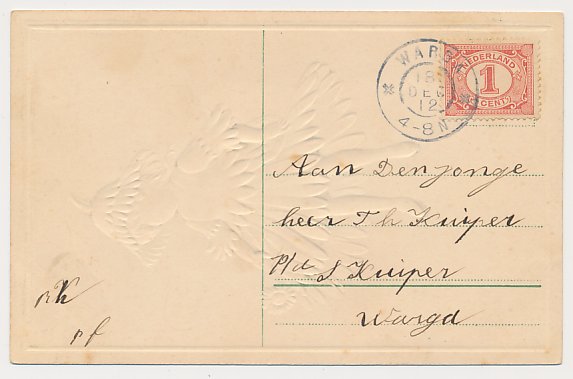 WARGA
18
DEC
12
4-8N
NEDERLAND
1
CENT
Aan Den jonge
heer Th Kuiper
P/d S Kuiper
Warga